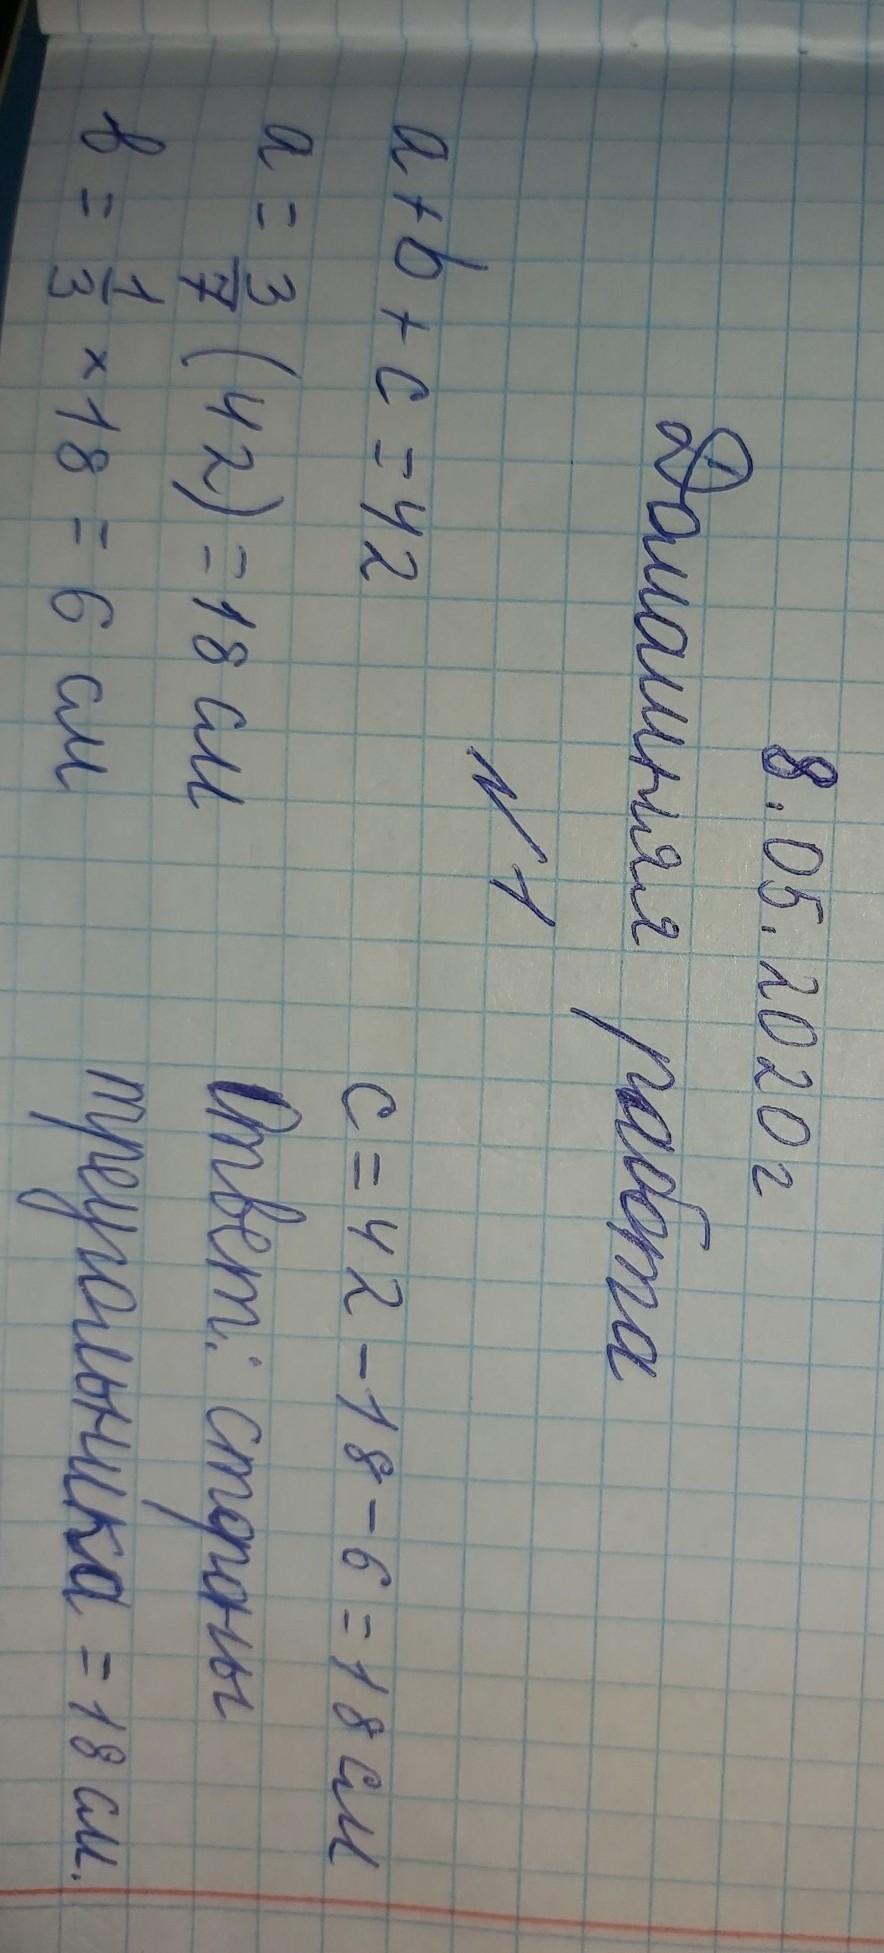 8.05.2020г
Домашняя работа
№1
a + b + c = 42
a = 3/7 (42) = 18 см
b = 1/3 × 18 = 6 см
c = 42 - 18 - 6 = 18 см
Ответ: стороны
треугольника = 18 см.